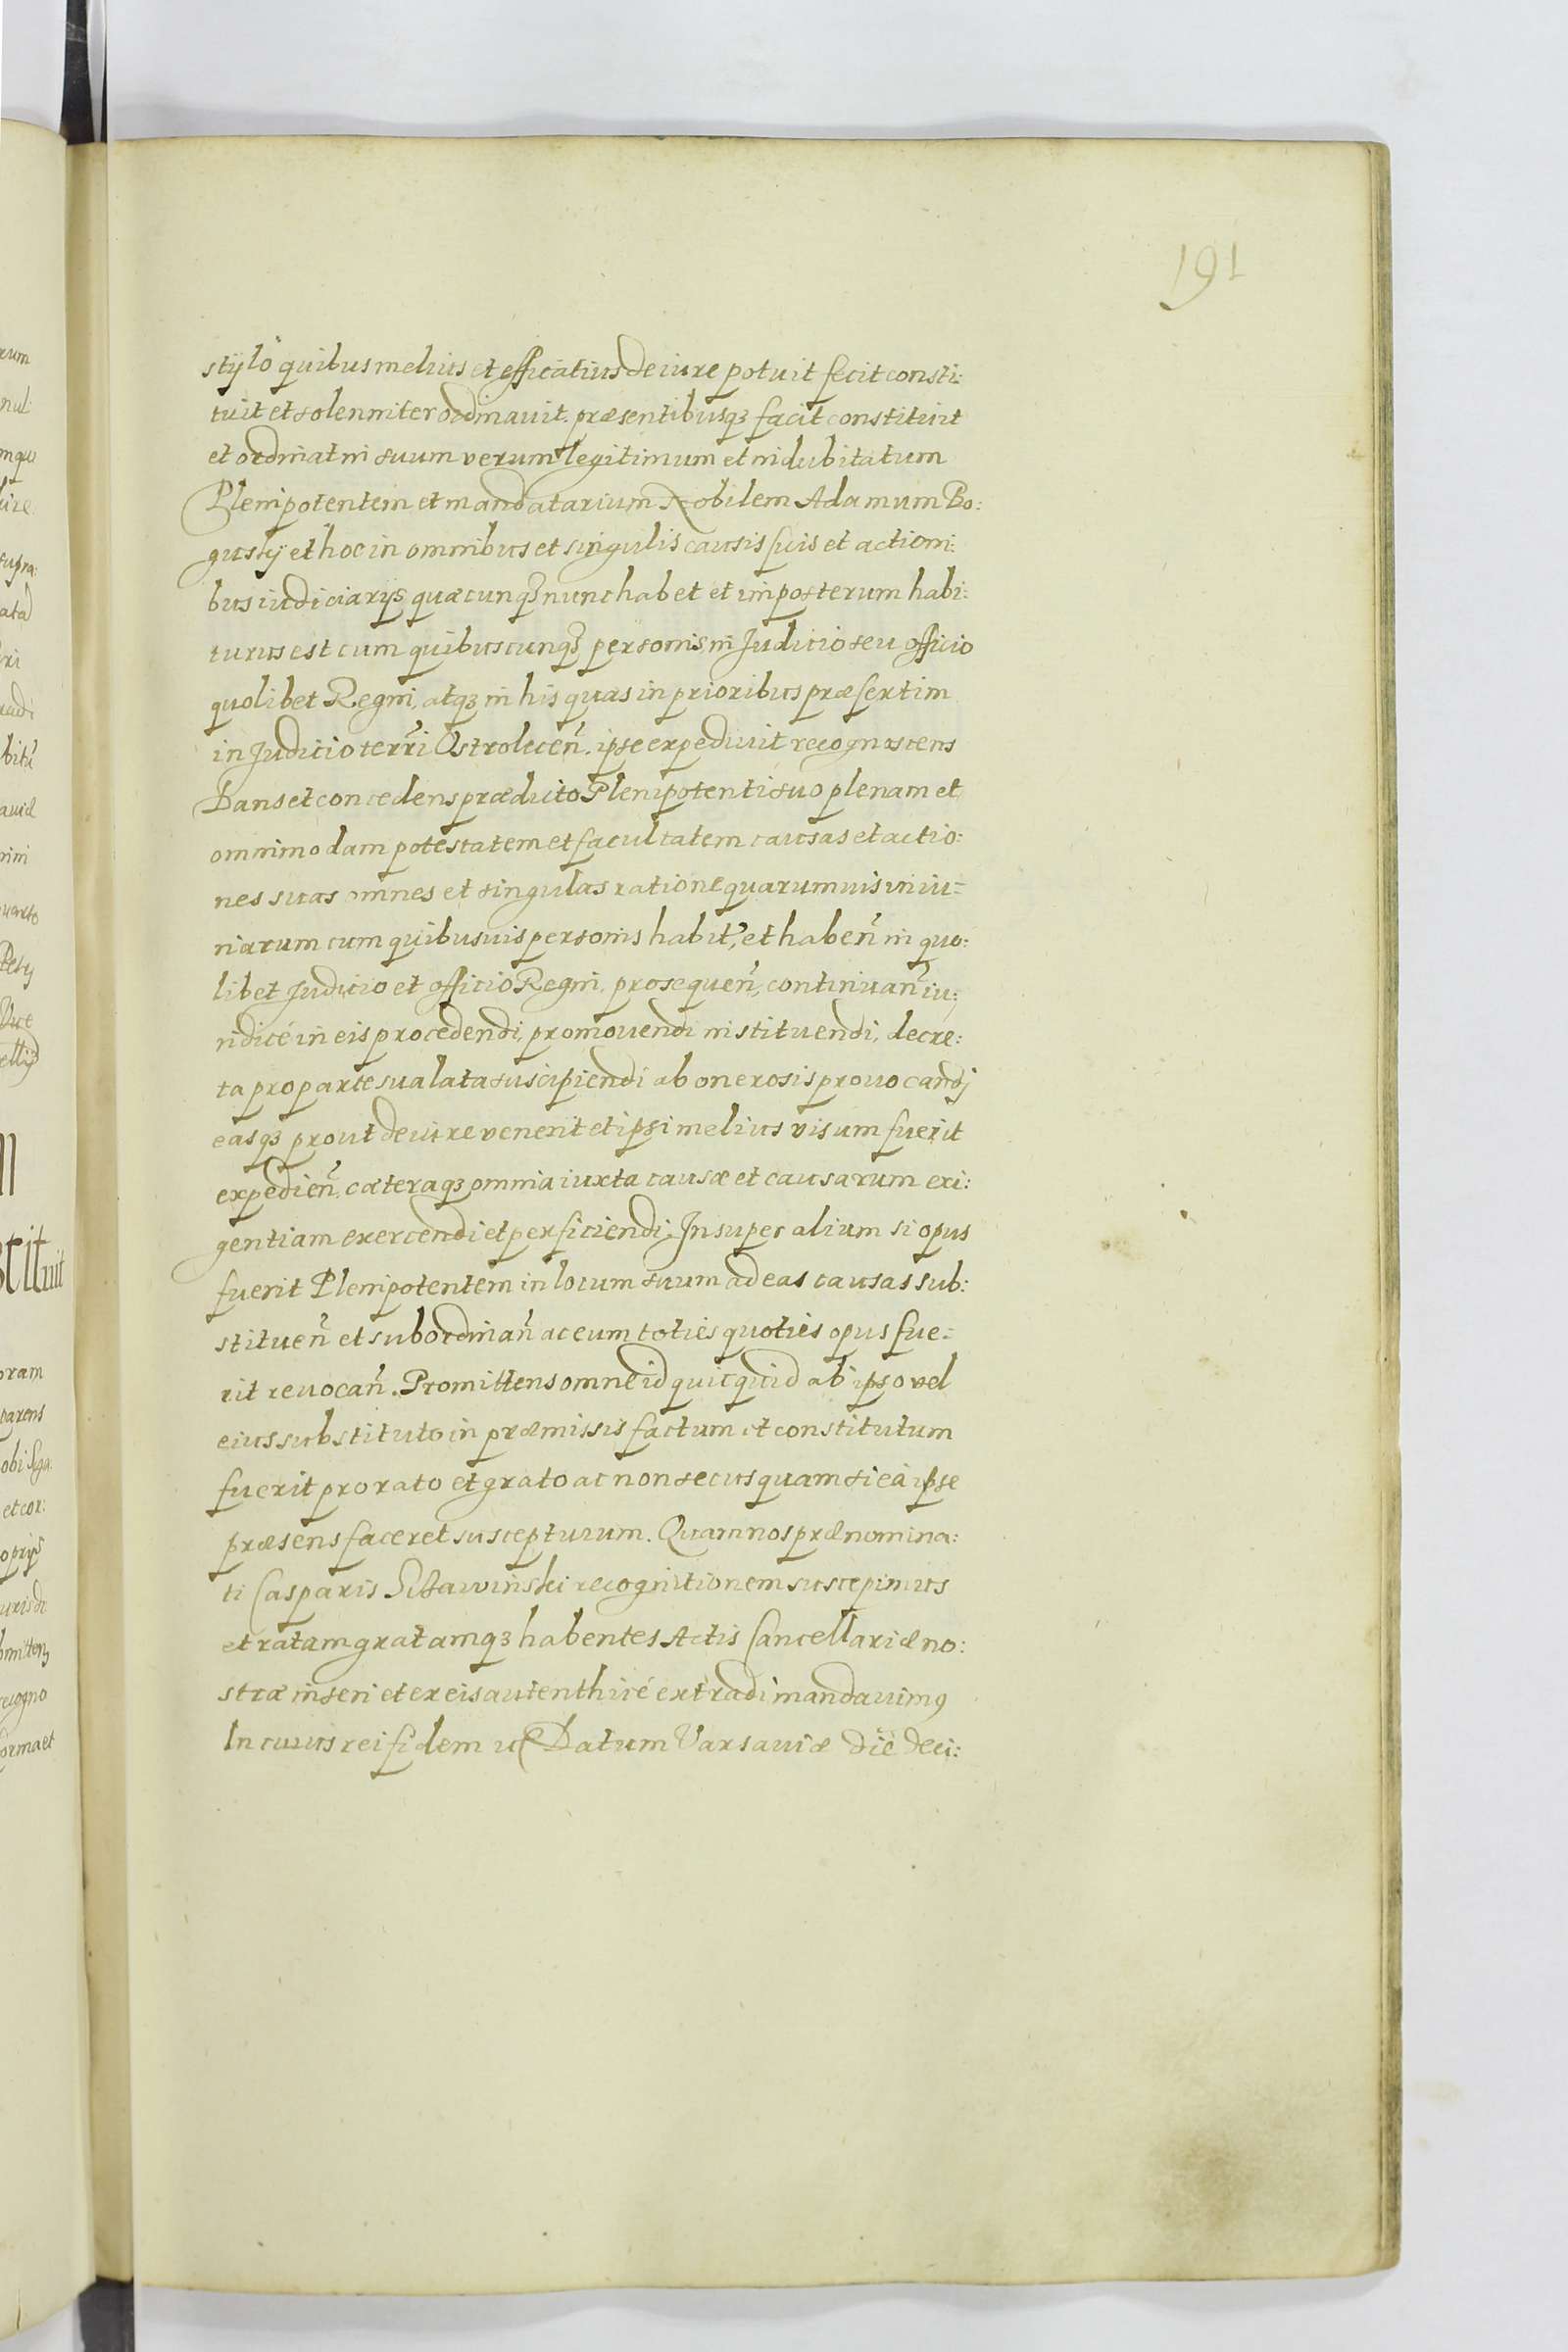 191
stÿlo quibus melius et efficatius de iure potuit fecit consti:
tuit et solenniter ordinauit. præsentibusqꝫ facit constituit
et ordinat in suum verum legitimum et indubitatum
Plenipotentem et mandatarium Nobilem Adamum Bo:
guskÿ et hoc in omnibus et singulis causis suis et actioni:
bus iudiciarÿs quæcunqꝫ nunc habet et imposterum habi:
turus est cum quibuscunqꝫ personis in Judicio seu officio
quolibet Regni, atqꝫ in his quas in prioribus præsertim
in Judicio terri Ostrolecen̄. ipse expediuit recognoscens
Dans et concedens prædicto Plenipotenti suo plenam et
omnimodam potestatem et facultatem causas et actio:
nes suas omnes et singulas ratione quarumuis iniu=
riarum cum quibusuis personis habit, et haben̄ in quo:
libet Judicio et officio Regni, prosequen̄, continuan̄ iu:
ridicé in eis procedendi, promouendi instituendi, decre:
ta pro parte sua lata suscipiendi ab onerosis prouocandj
easqꝫ prout de iure venerit et ipsi melius visum fuerit
expedien̄, cæteraqꝫ omnia iuxta causæ et causarum exi:
gentiam exercendi et perficiendi. Insuper alium si opus
fuerit Plenipotentem in locum suum ad eas causas sub:
stituen̄ et subordinan̄ ac eum toties quoties opus fue=
rit reuocan̄. Promittens omne id quicquid ab ipso vel
eius substituto in præmissis factum et constitutum
fuerit pro rato et grato ac non secus quam si ea ipse
præsens faceret suscepturum. Quam nos prænomina:
ti Casparis recognitionem suscepimus
et ratam gratamqꝫ habentes Actis Cancellariæ no:
stræ inseri et ex eis autenthicé extradi mandauimꝰ
In cuius rei fidem Datum Varsauiæ die deci: